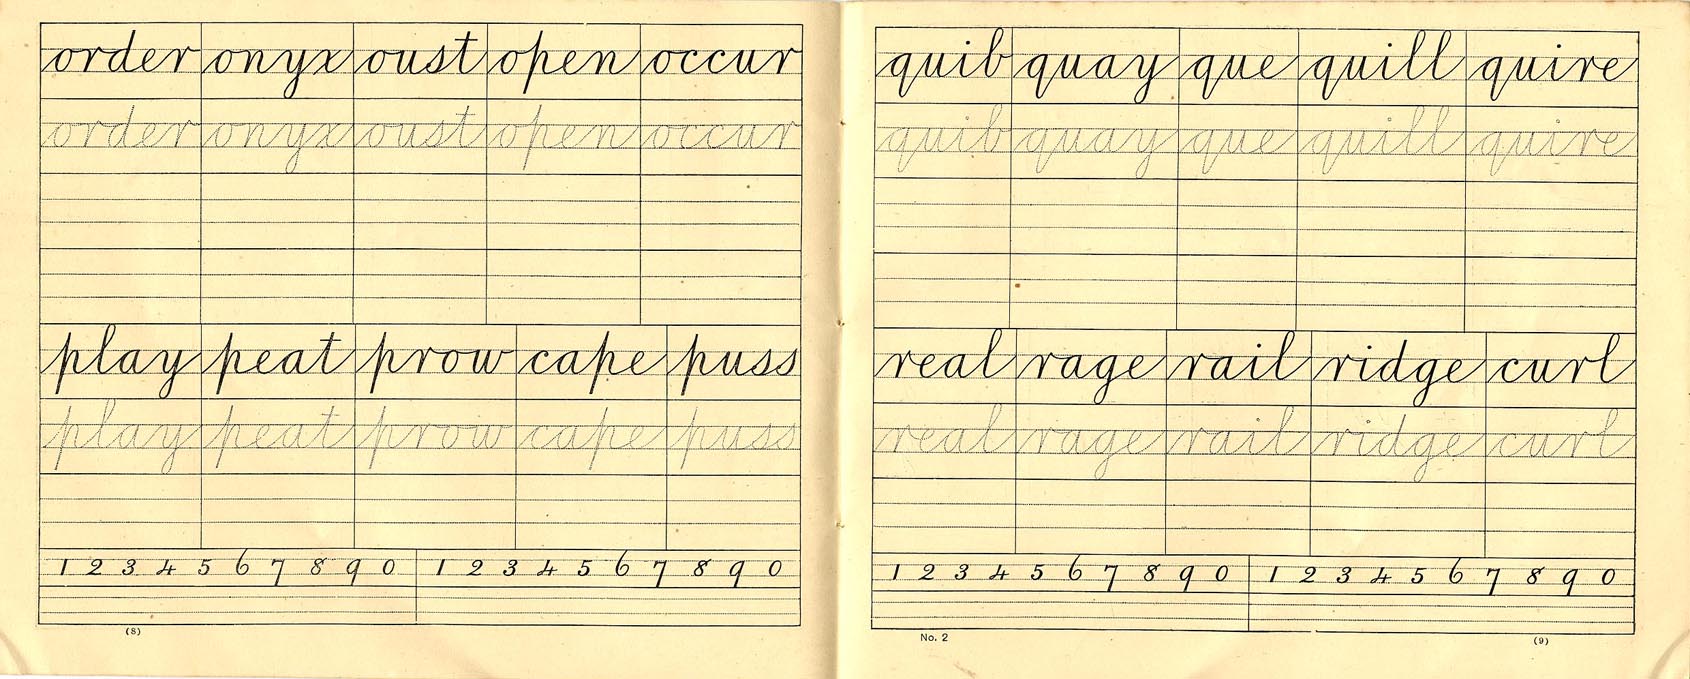 order onyx oust open occur
order onyx oust open occur
play peat prow cape puss
play peat prow cape puss
1 2 3 4 5 6 7 8 9 0 1 2 3 4 5 6 7 8 9 0
(8)
quib quay que quill quire
quib quay que quill quire
real rage rail ridge curl
real rage rail ridge curl
1 2 3 4 5 6 7 8 9 0 1 2 3 4 5 6 7 8 9 0
No. 2 (9)